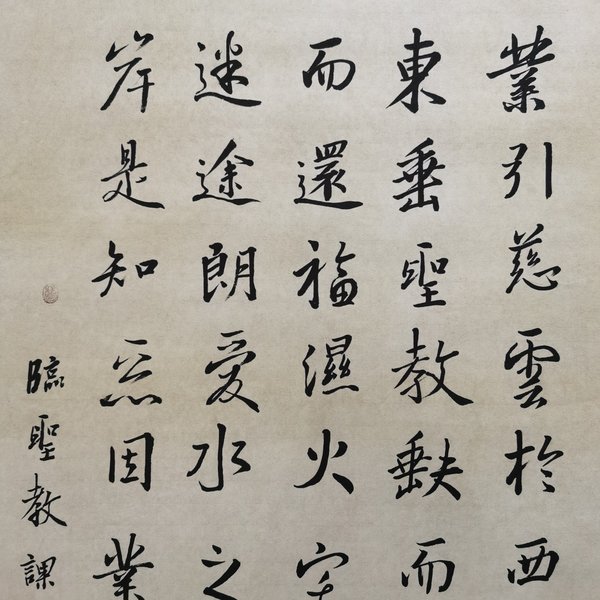 業引慈雲於西
東垂聖教缺而
而還福濕火宅
迷途朗愛水之
岸是知惡因業
臨聖教課